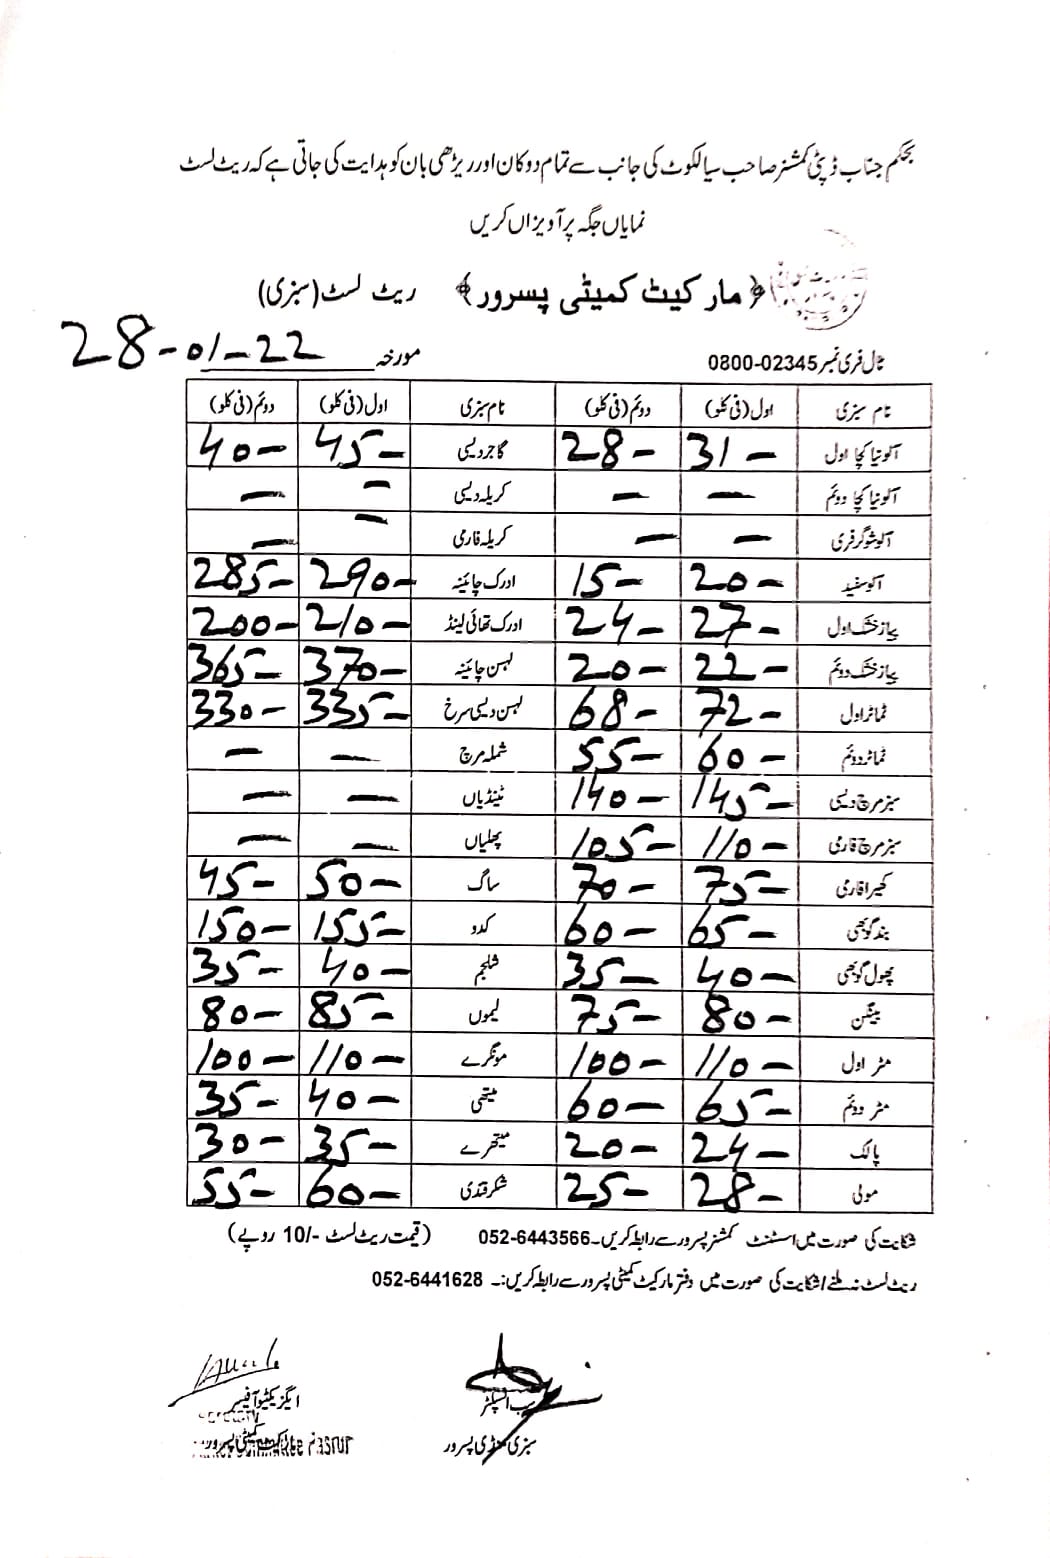 بحکم جناب ڈپٹی کمشنر صاحب سیالکوٹ کی جانب سے تمام دوکان اور ریڑھی بان کو ہدایت کی جاتی ہے کہ ریٹ لسٹ
نمایاں جگہ پر آویزاں کریں
﴿مارکیٹ کمیٹی پسرور﴾ ریٹ لسٹ (سبزی)
ٹال فری نمبر 0800-02345 مورخہ 28-01-22
نام سبزی اول (فی کلو) دوئم (فی کلو) نام سبزی اول (فی کلو) دوئم (فی کلو)
آلو نیا کچا اول 31- 28- گاجر دیسی 45- 40-
آلو نیا کچا دوئم - - کریلہ دیسی - -
آلو شوگر فری - - کریلہ فارمی - -
آلو سفید 20- 15- ادرک چائینہ 290- 285-
پیاز خشک اول 27- 24- ادرک تھائی لینڈ 210- 200-
پیاز خشک دوئم 22- 20- لہسن چائینہ 370- 365-
ٹماٹر اول 72- 68- لہسن دیسی سرخ 335- 330-
ٹماٹر دوئم 60- 55- شملہ مرچ - -
سبز مرچ دیسی 145- 140- ٹینڈیاں - -
سبز مرچ فارمی 110- 105- پھلیاں - -
کھیرا فارمی 75- 70- ساگ 50- 45-
بند گوبھی 65- 60- کدو 155- 150-
پھول گوبھی 40- 35- شلجم 40- 35-
بینگن 80- 75- لیموں 85- 80-
مٹر اول 110- 100- مونگرے 110- 100-
مٹر دوئم 65- 60- میتھی 40- 35-
پالک 24- 20- میتھرے 35- 30-
مولی 28- 25- شکر قندی 60- 55-
شکایت کی صورت میں اسسٹنٹ کمشنر پسرور سے رابطہ کریں۔ 052-6443566 (قیمت ریٹ لسٹ -/10 روپے)
ریٹ لسٹ نہ ملنے / شکایت کی صورت میں دفتر مارکیٹ کمیٹی پسرور سے رابطہ کریں:۔ 052-6441628
ایگزیکٹو آفیسر سب انسپکٹر
مارکیٹ کمیٹی پسرور سبزی منڈی پسرور